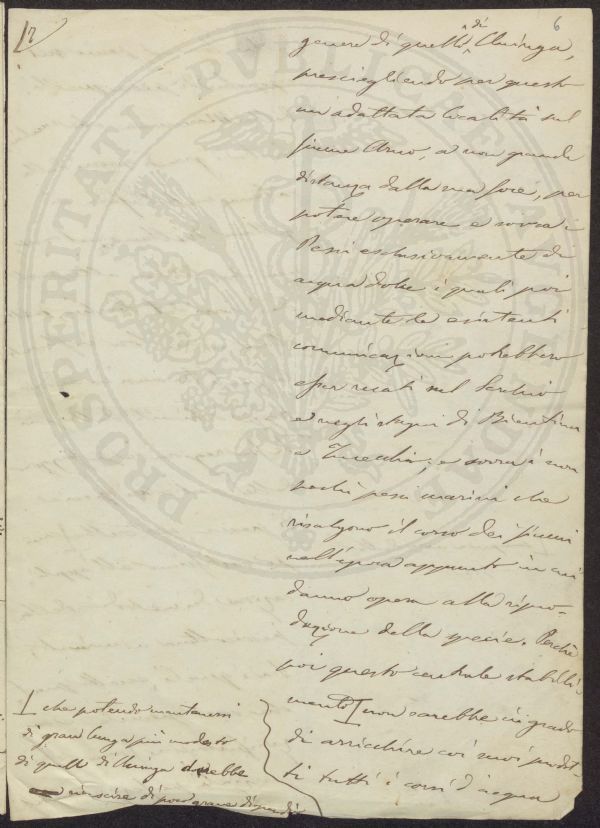 12
6
genere di quello di Uninga,
prescegliendo per questo
un adattata località sul
fiume Arno, a non grande
distanza dalla sua foce, per
potere operare e sovra i
Pesci esclusivamente di
acqua dolce i quali poi
mediante le esistenti
comunicazioni potrebbero
esser recati nel Serchio
e negli stagni di Bientina
e Fucecchio, e sovra i non
pochi pesci marini che
risalgono il corso dei fiumi
nell'epoca appunto in cui
danno opera alla ripro-
duzione della specie. Perchè
poi questo centrale stabili
mento non sarebbe in grado
di arricchire coi suoi prodot-
ti tutti i corsi d'acqua
che potendo mantenersi
di gran lunga più modesto
di quello di Uninga dovrebbe
riuscire di poco grave dispendio
PROSPERITATI PUBLICAE AUGENDAE